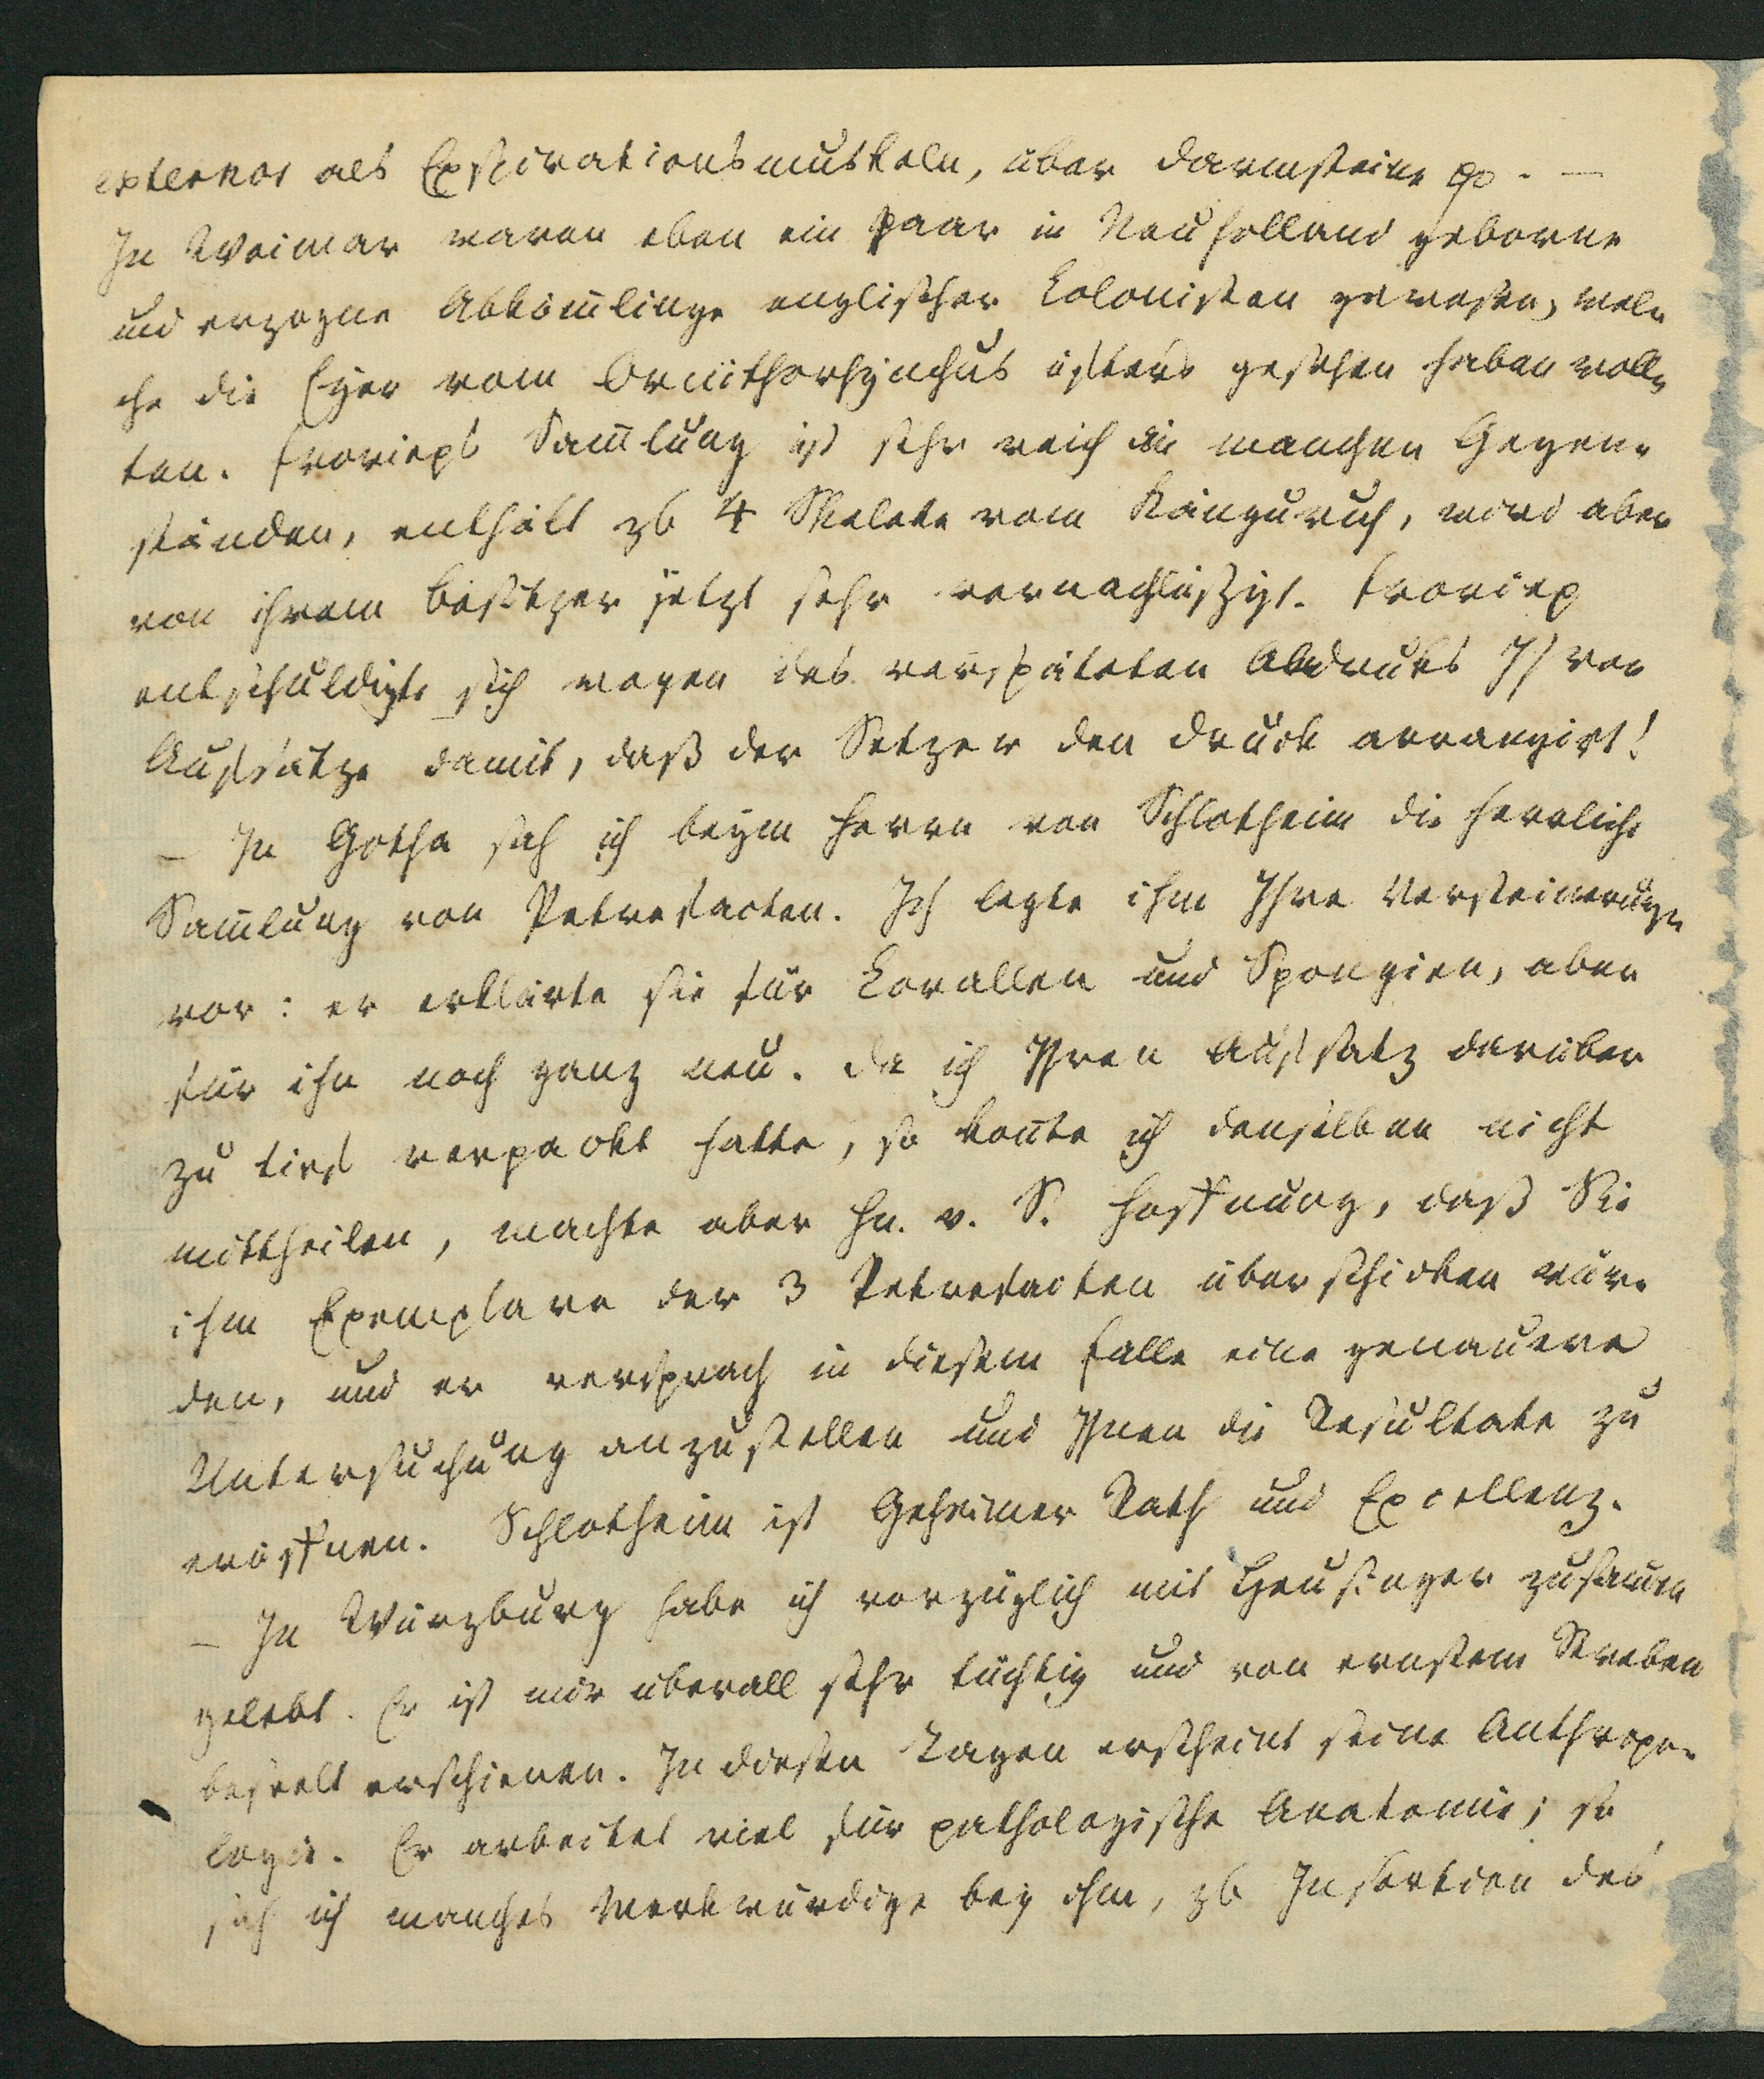 externos als Exspirationsmuskeln, über Darmsteine pp. —
In Weimar waren eben ein Paar in Neuholland geborne
und erzogne Abkömlinge englischer Colonisten gewesen, wel-
che die Eyer vom Ornithorhynchus öfters gesehen haben woll-
ten. Froriep's Samlung ist sehr reich an manchen Gegen-
ständen, enthält zb 4 Skelete vom Känguruh, wird aber
von ihrem Besitzer jetzt sehr vernachläßigt. Froriep
entschuldigte sich wegen des verspäteten Abdruks Ihrer
Aufsätze damit, daß der Setzer den Druck arrangirt!
— In Gotha sah ich beym Herrn von Schlotheim die herrliche
Samlung von Petrefacten. Ich legte ihm Ihre Versteinerungen
vor: er erklärte sie für Corallen und Spongien, aber
für ihn noch ganz neu. Da ich Ihren Aufsatz darüber
zu tief verpackt hatte, so konte ich denselben nicht
mittheilen, machte aber Hn. v. S. Hoffnung, daß Sie
ihm Exemplare der 3 Petrefacten überschicken wür-
den, und er versprach in diesem Falle eine genauere
Untersuchung anzustellen und Ihnen die Resultate zu
eröffnen. Schlotheim ist Geheimer Rath und Excellenz.
— In Würzburg habe ich vorzüglich mit Heusinger zusamen
gelebt. Er ist mir überall sehr tüchtig und von ernstem Streben
beseelt erschienen. In diesen Tagen erscheint seine Anthropo-
logie. Er arbeitet viel für pathologische Anatomie; so
sah ich manches Merkwürdige bey ihm, zb Insertion des